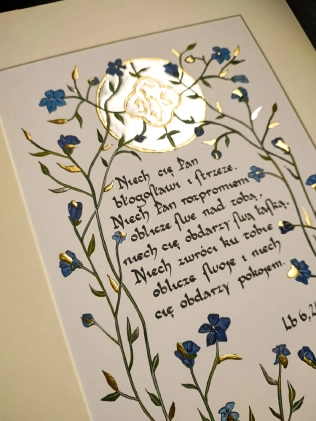 Niech cię Pan
błogosławi i strzeże.
Niech Pan rozpromieni
oblicze swe nad tobą,
niech cię obdarzy swą łaską.
Niech zwróci ku tobie
oblicze swoje i niech
cię obdarzy pokojem.
Lb 6,2